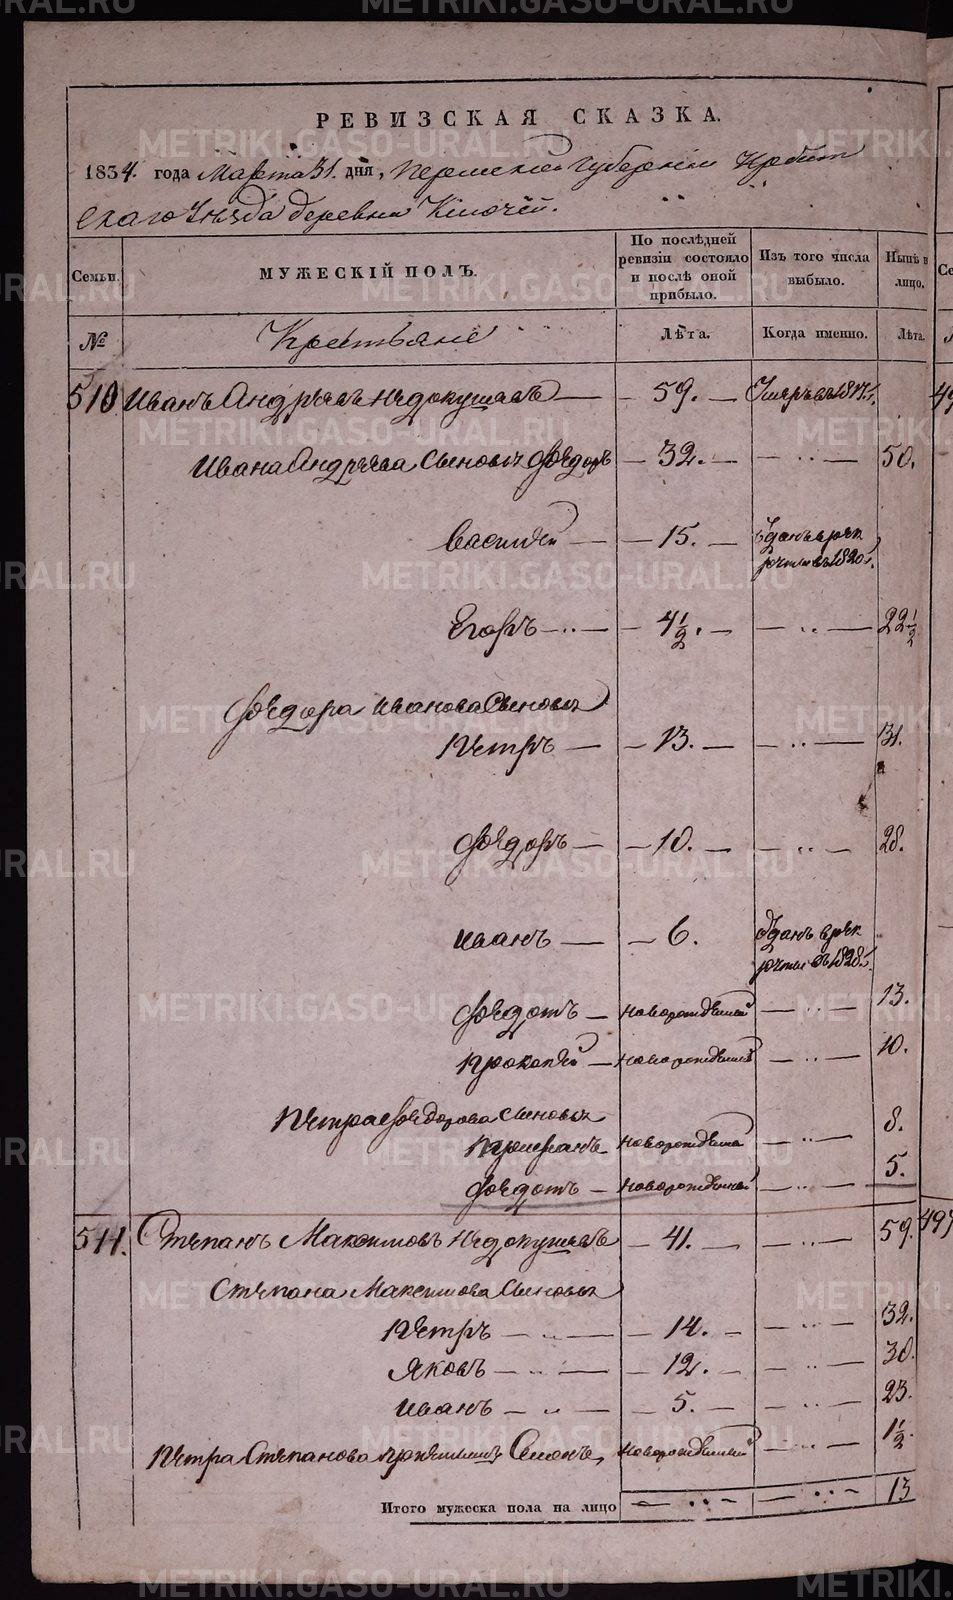 РЕВИЗСКАЯ СКАЗКА.
1834. года Марта 31. дня, Пермской Губернии Ирбит
скаго Уѣзда деревни Ключей.
Семьи.
МУЖЕСКІЙ ПОЛЪ.
По послѣдней ревизіи состояло и послѣ оной прибыло.
Изъ того числа выбыло.
Нынѣ в лицо.
№ Крестьяне Лѣта. Когда именно. Лѣта.
510 Иванъ Андреевъ Недокушевъ — 59. — Умеръ въ 1817 г.
Ивана Андреева Сыновья Федоръ — 32. — — 50.
Василей — 15. — Зданъ в рек
рути въ 1820 г.
Егоръ — 4 1/2. — — 22 1/2
Федора Иванова Сыновья
Петръ — 13. — — 31.
Федоръ — 10. — — 28.
Иванъ — 6. Зданъ в рек
рути въ 1828 г.
Федотъ — новорожденный — 13.
Прокопей — новорожденный — 10.
Петра Федорова Сыновья
новорожденна — 8.
Федотъ — новорожденный — 5.
511. Степанъ Максимовъ Недокушевъ — 41. — 59.
Степана Максимова Сыновья
Петръ — 14. — 32.
Яковъ — 12. — 30.
Иванъ — 5. — 23.
Петра Степанова Семенъ, новорожденный — 1 1/2.
Итого мужеска пола на лицо — — 13
METRIKI.GASO-URAL.RU